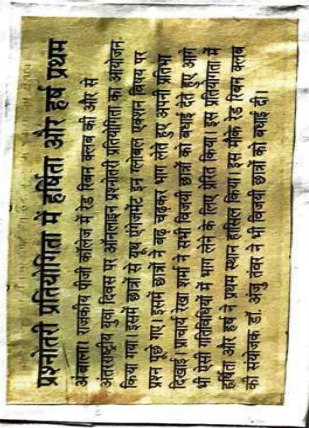 प्रश्नोतरी प्रतियोगिता में हर्षिता और हर्ष प्रथम
अंबाला। राजकीय पीजी कॉलेज में रेड रिबन क्लब की ओर से
अंतरराष्ट्रीय युवा दिवस पर ऑनलाइन प्रश्नोतरी प्रतियोगिता का आयोजन
किया गया। इसमें छात्रों से यूथ एंगेजमेंट इन ग्लोबल एक्शन विषय पर
प्रश्न पूछे गए। इसमें छात्रों ने बढ़ चढ़कर भाग लेते हुए अपनी प्रतिभा
दिखाई। प्राचार्य रेखा शर्मा ने सभी विजयी छात्रों को बधाई देते हुए आगे
भी ऐसी गतिविधियों में भाग लेने के लिए प्रेरित किया। इस प्रतियोगिता में
हर्षिता और हर्ष ने प्रथम स्थान हासिल किया। इस मौके रेड रिबन क्लब
की संयोजक डॉ. अंजु तंवर ने भी विजयी छात्रों को बधाई दी।